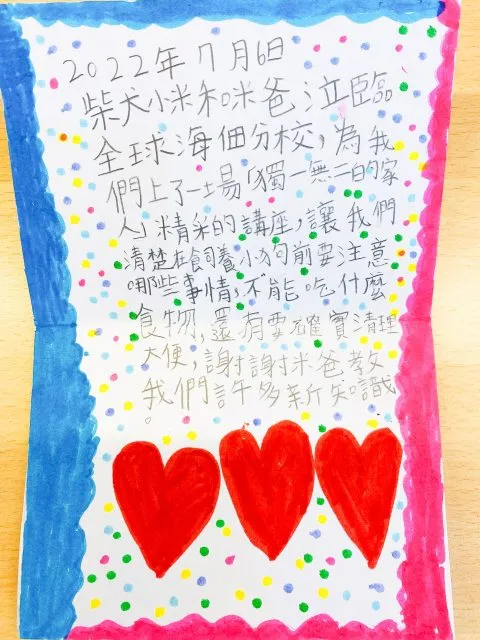 2022年7月6日
柴犬小米和咪爸泣臨
全球海佃分校,為我
們上了一場「獨一無二的家
人」精采的講座,讓我們
清楚在飼養小狗前要注意
哪些事情,不能吃什麼
食物,還有要確實清理
大便,謝謝米爸教
我們許多新知識
。